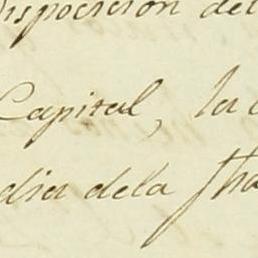 disposicion del
Capital, la
dia dela